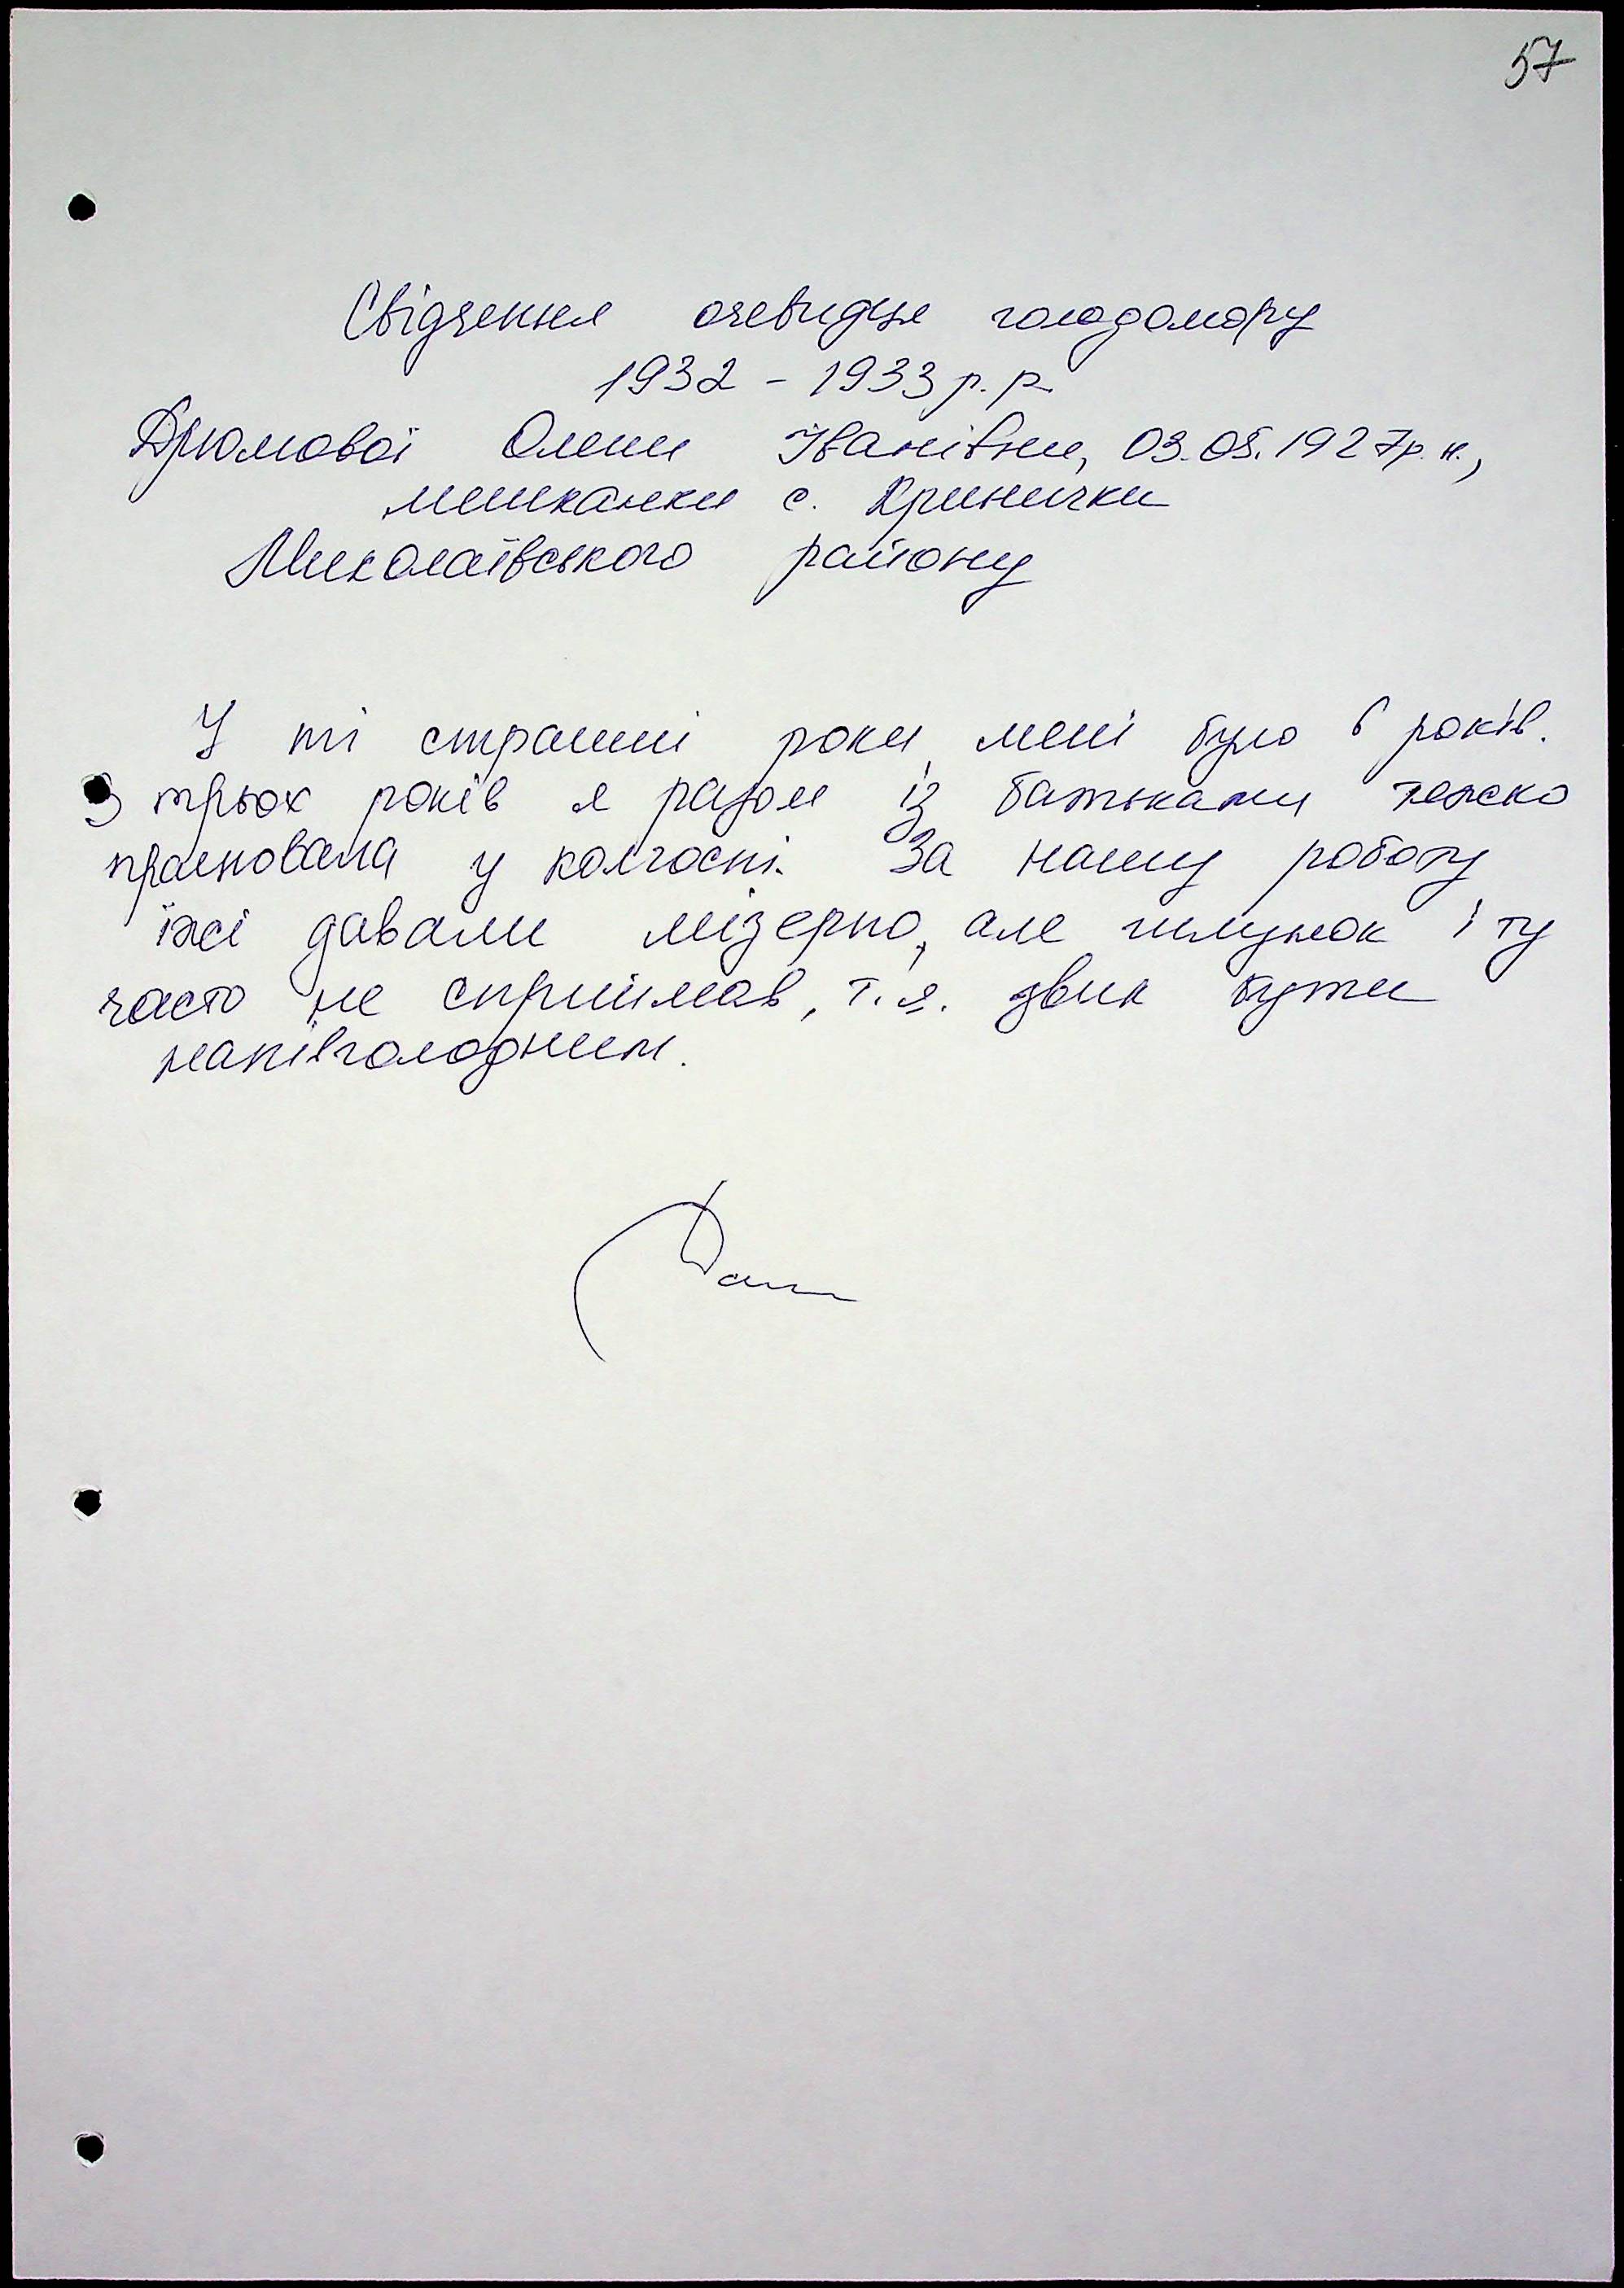 57
Свідчення очевидця голодомору
1932 - 1933 р. р.
Дрюмової Олени Іванівни, 03.05.1927р.н.,
мешканки с. Кринички
Миколаївського району
У ті страшні роки мені було 6 років.
З трьох років я разом із батьками тяжко
працювала у колгоспі. За нашу роботу
їжі давали мізерно, але шлунок і ту
часто не сприймав, т.я. звик бути
напівголодним.